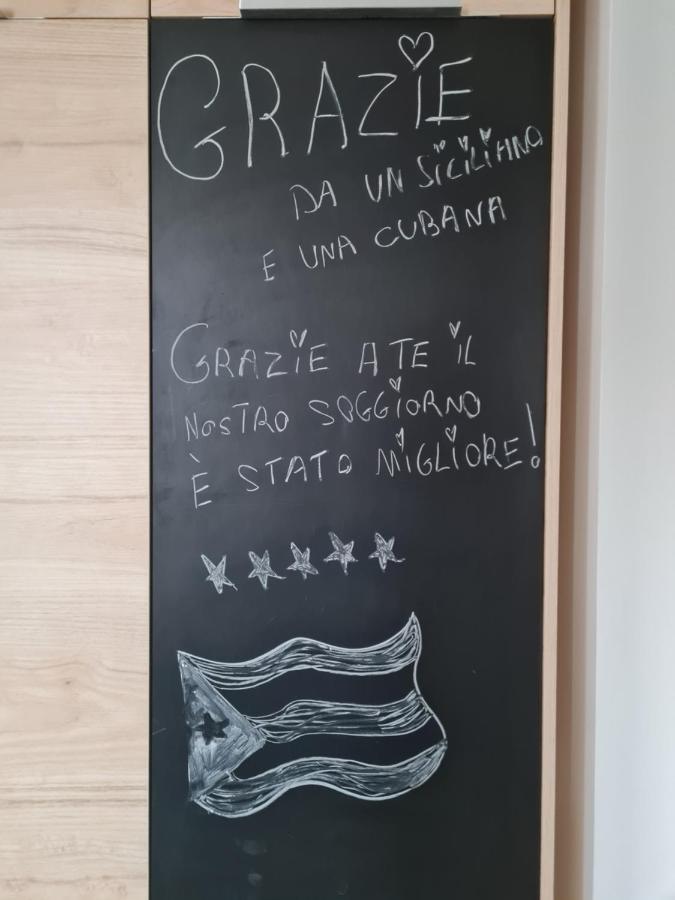 GRAZIE
DA UN SICILIANO
E UNA CUBANA
GRAZIE A TE IL
NOSTRO SOGGIORNO
È STATO MIGLIORE!